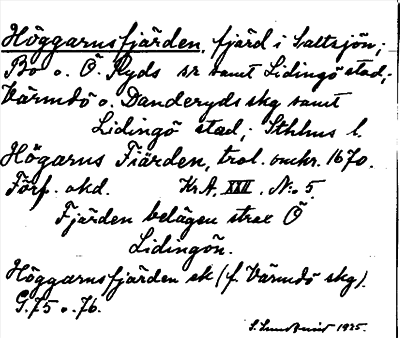 Höggarnsfjärden, fjärd i Saltsjön;
Bo o. Ö. Ryds sr samt Lidingö stad;
Värmdö o. Danderyds skg samt
Lidingö stad; Sthlms l.
Högarns Fiärden, trol. omkr. 1670.
Förf. okd. Kr.A. XXII. N:o 5.
Fjärden belägen strax Ö
Lidingön.
Höggarnsfjärden ek (f. Värmdö skg).
G. 75 o. 76.
1925.